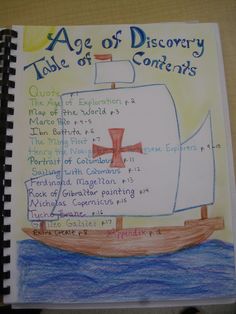 Age of Discovery
Table of Contents
Quote p.1
The Age of Exploration p.2
Map of the World p.3
Marco Polo p.4-5
Ibn Battuta p.6
The Ming Fleet p.7
Henry the Explorers p.9-10
Portrait of Columbus p.11
Sailing with Columbus p.12
Ferdinand Magellan p.13
Rock of Gibraltar painting p.14
Nicholas Copernicus p.15
Tycho Brahe p.16
Galileo Galilei p.17
Extra Credit p.8 Appendix p.18